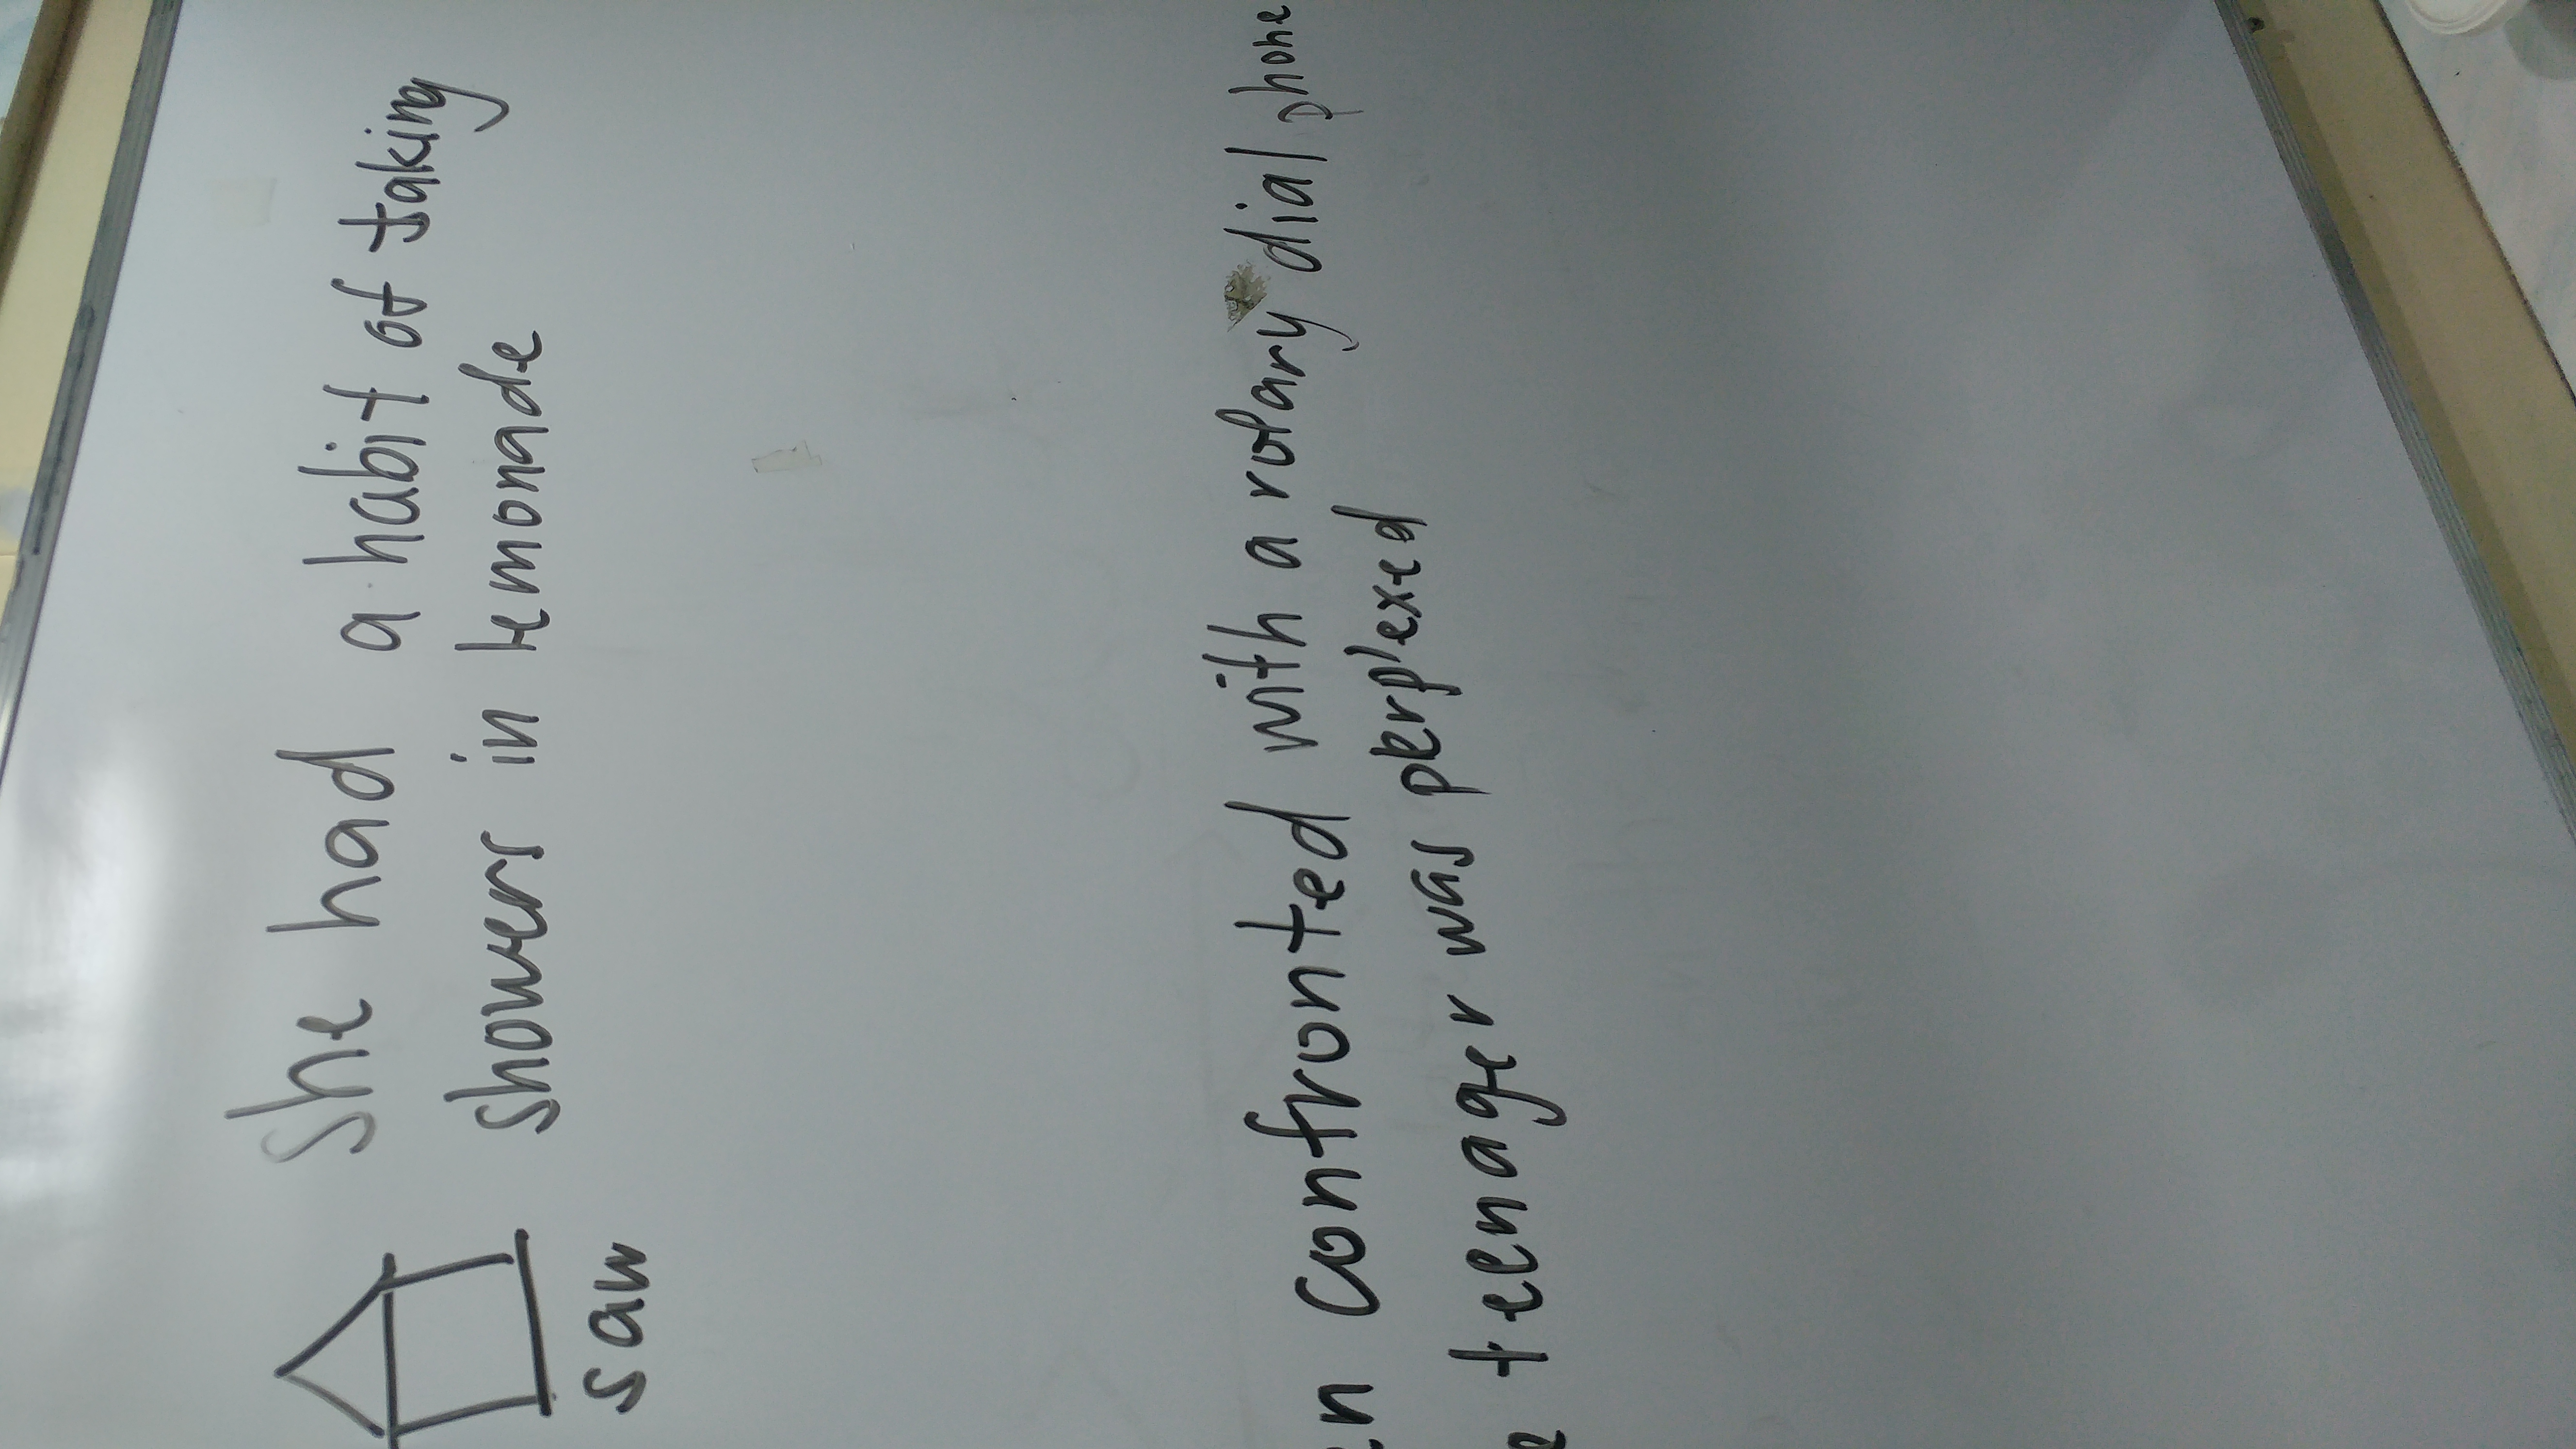 She had a habit of taking
showers in lemonade
saw
en confronted with a rotary dial phone
e teenager was perplexed